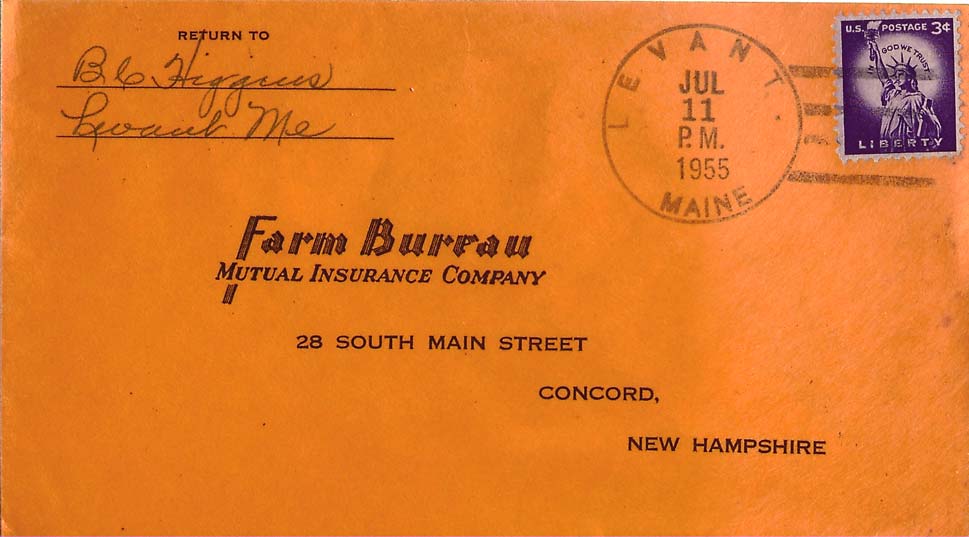 RETURN TO
B C Higgins
Levant Me
LEVANT
JUL
11
P.M.
1955
MAINE
U.S. POSTAGE 3¢
IN GOD WE TRUST
LIBERTY
Farm Bureau
MUTUAL INSURANCE COMPANY
28 SOUTH MAIN STREET
CONCORD,
NEW HAMPSHIRE